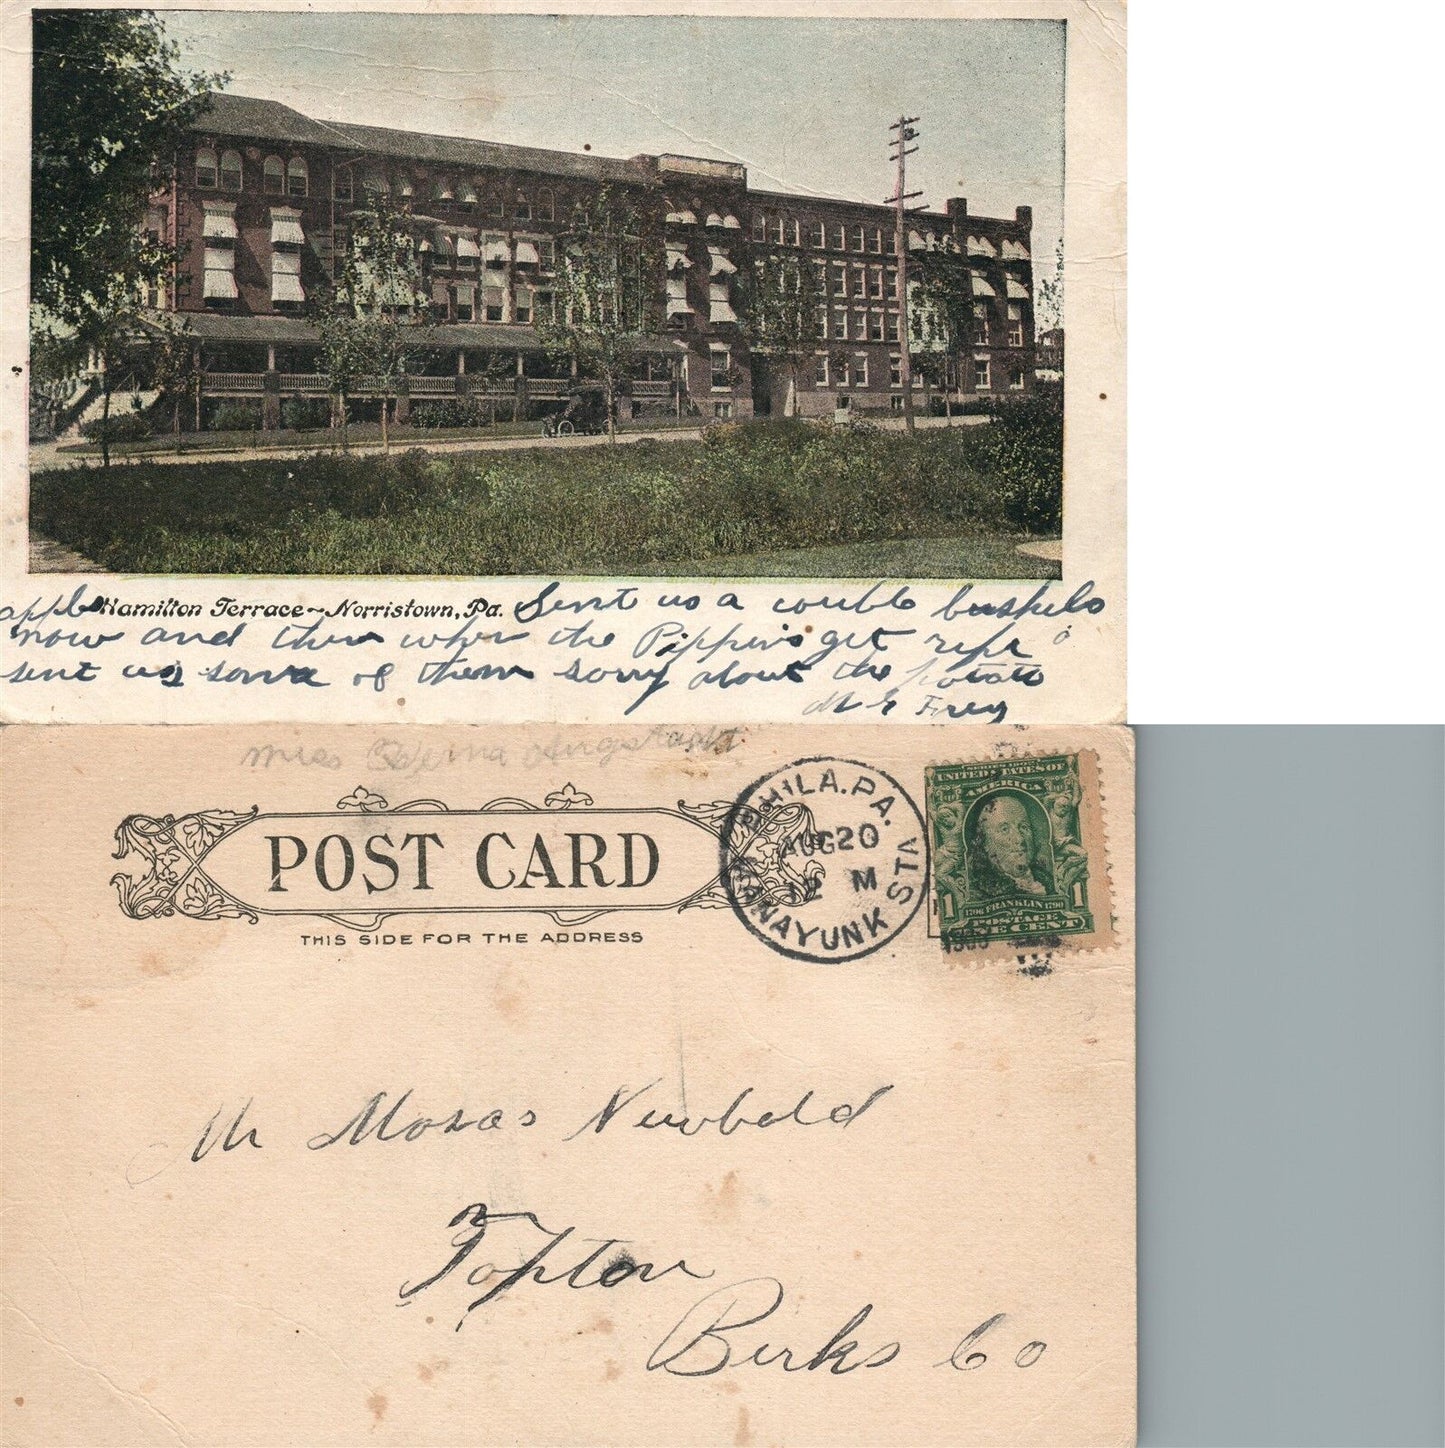 Hamilton Terrace~Norristown, Pa.
Sent us a couble bushels
apple
now and then when the Pippins get ripe
sent us some of them sorry about the potato
M E Frey
Miss
POST CARD
THIS SIDE FOR THE ADDRESS
PHILA. PA.
AUG 20
12 M
MANAYUNK STA
SERIES 1902
UNITED STATES OF
AMERICA
1 1
1706 FRANKLIN 1790
POSTAGE
ONE CENT
Mr Mosas Newbold
Topton
Berks Co